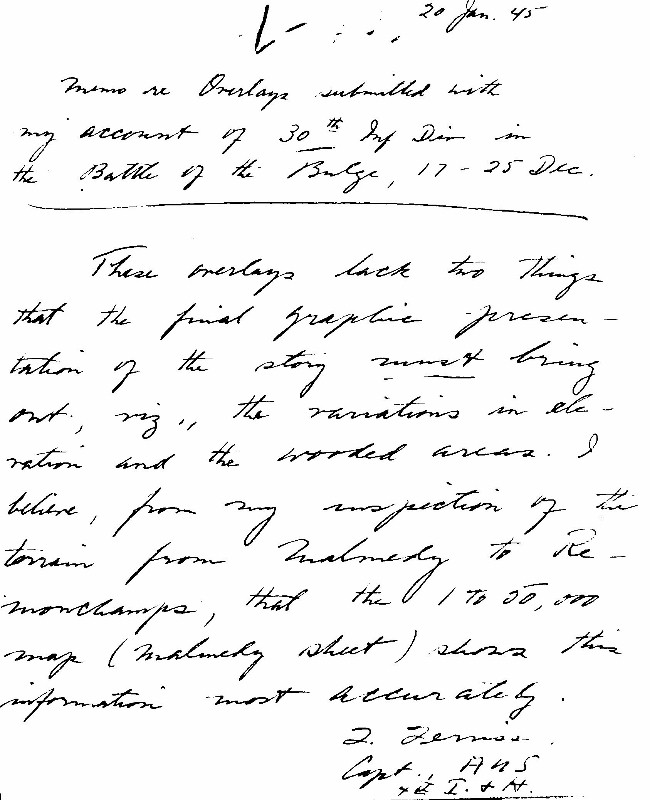 20 Jan. 45
Memo re Overlays submitted with
my account of 30th Inf Div in
the Battle of the Bulge, 17-25 Dec.
These overlays lack two things
that the final graphic presen-
tation of the story must bring
out, viz., the variations in ele-
vation and the wooded areas. I
believe, from my inspection of the
terrain from Malmedy to Re-
monchamps, that the 1 to 50,000
map (Malmedy sheet) shows this
information most accurately.
Capt., AUS
I. & H.